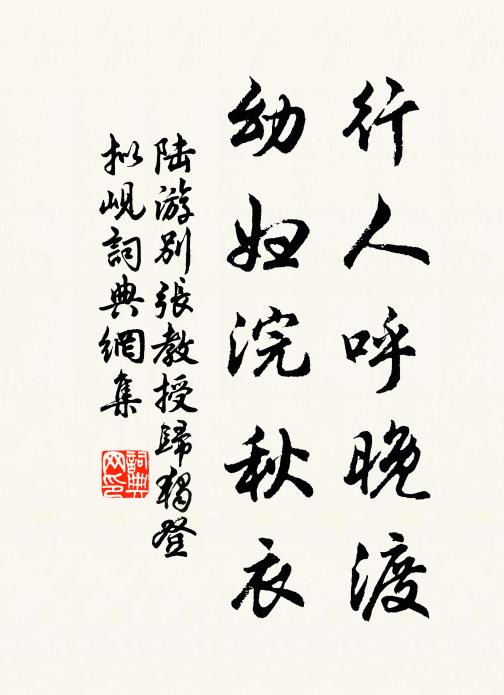 行人呼晚渡
幼妇浣秋衣
陆游别張教授歸獨登
拟岘詞典網集
詞典网印